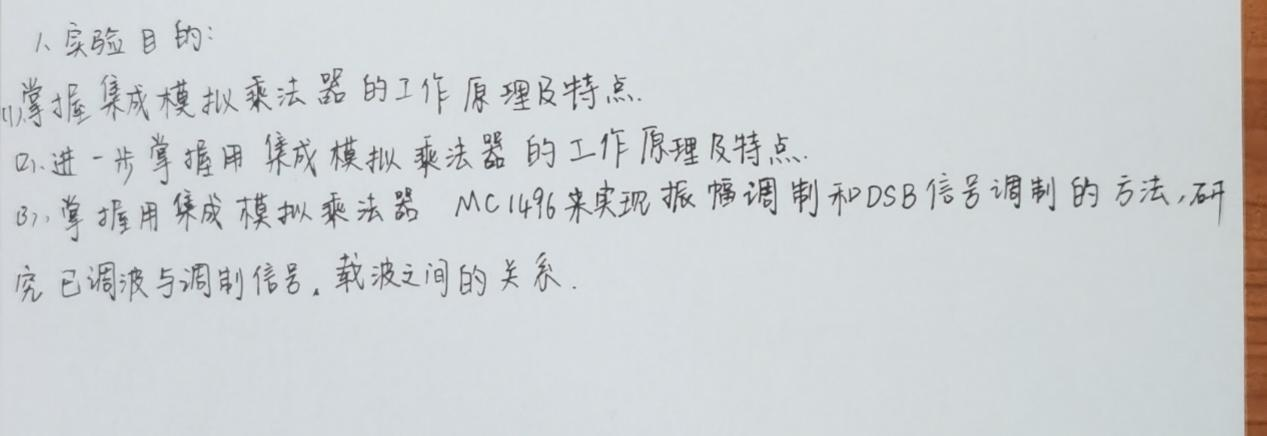 1、实验目的:
(1)、掌握集成模拟乘法器的工作原理及特点.
(2)、进一步掌握用集成模拟乘法器的工作原理及特点.
(3)、掌握用集成模拟乘法器 MC1496来实现振幅调制和DSB信号调制的方法,研
究已调波与调制信号、载波之间的关系.